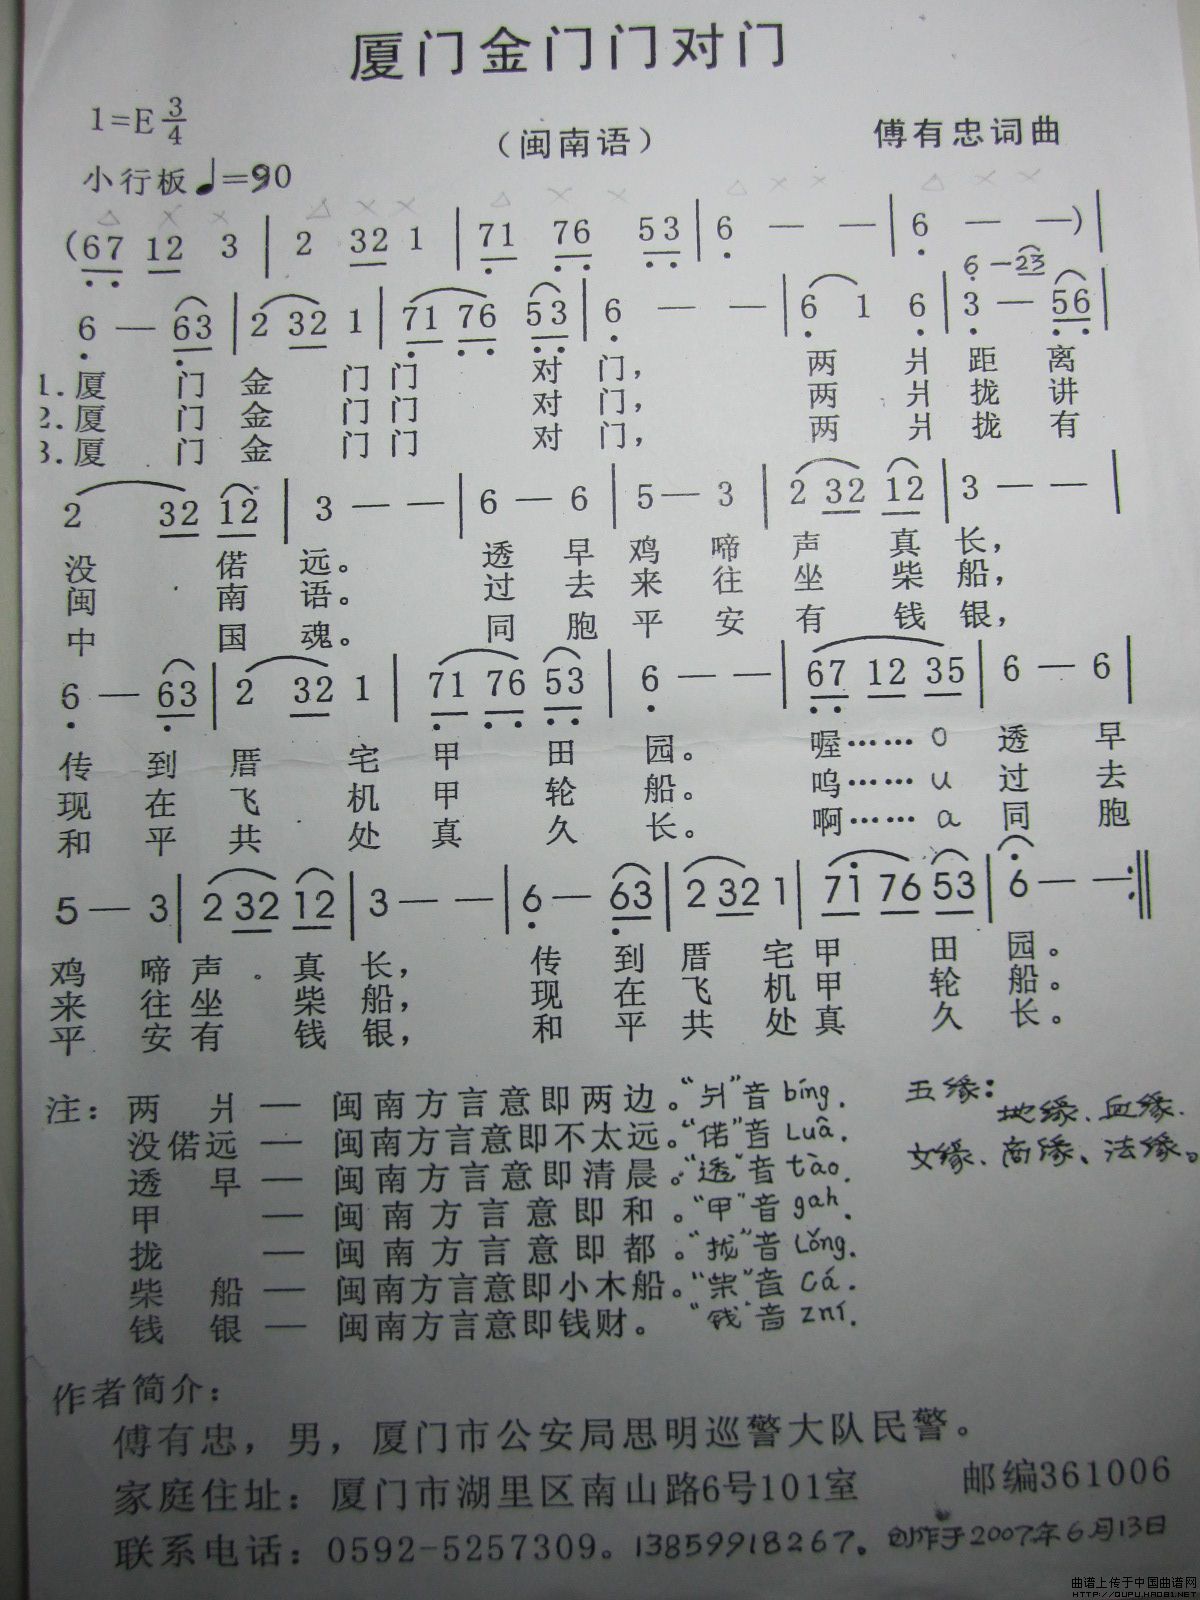 厦门金门门对门
1=E 3/4
（闽南语）
傅有忠词曲
小行板♩=90
(67 12 3 | 2 32 1 | 71 76 53 | 6 — — | 6 — —) |
6 — 23
6 — 63 | 2 32 1 | 71 76 53 | 6 — — | 6 1 6 | 3 — 56 |
1.厦 门 金 门 门 对 门， 两 爿 距 离
2.厦 门 金 门 门 对 门， 两 爿 拢 讲
3.厦 门 金 门 门 对 门， 两 爿 拢 有
2 32 12 | 3 — — | 6 — 6 | 5 — 3 | 2 32 12 | 3 — — |
没 偌 远。 透 早 鸡 啼 声 真 长，
闽 南 语。 过 去 来 往 坐 柴 船，
中 国 魂。 同 胞 平 安 有 钱 银，
6 — 63 | 2 32 1 | 71 76 53 | 6 — — | 67 12 35 | 6 — 6 |
传 到 厝 宅 甲 田 园。 喔…… o 透 早
现 在 飞 机 甲 轮 船。 呜…… u 过 去
和 平 共 处 真 久 长。 啊…… a 同 胞
5 — 3 | 2 32 12 | 3 — — | 6 — 63 | 2 32 1 | 71 76 53 | 6 — — :‖
鸡 啼 声 真 长， 传 到 厝 宅 甲 田 园。
来 往 坐 柴 船， 现 在 飞 机 甲 轮 船。
平 安 有 钱 银， 和 平 共 处 真 久 长。
注：两 爿 — 闽南方言意即两边。“爿”音 bíng.
没偌远 — 闽南方言意即不太远。“偌”音 Luâ.
透 早 — 闽南方言意即清晨。“透”音 tào.
甲 — 闽南方言意即和。“甲”音 gah.
拢 — 闽南方言意即都。“拢”音 Lǒng.
柴 船 — 闽南方言意即小木船。“柴”音 Cá.
钱 银 — 闽南方言意即钱财。“钱”音 zní.
五缘：
地缘、血缘、
文缘、商缘、法缘。
作者简介：
傅有忠，男，厦门市公安局思明巡警大队民警。
家庭住址：厦门市湖里区南山路6号101室 邮编361006
联系电话：0592-5257309。13859918267。创作于2007年6月13日
曲谱上传于中国曲谱网
HTTP://QUPU.HAO81.NET